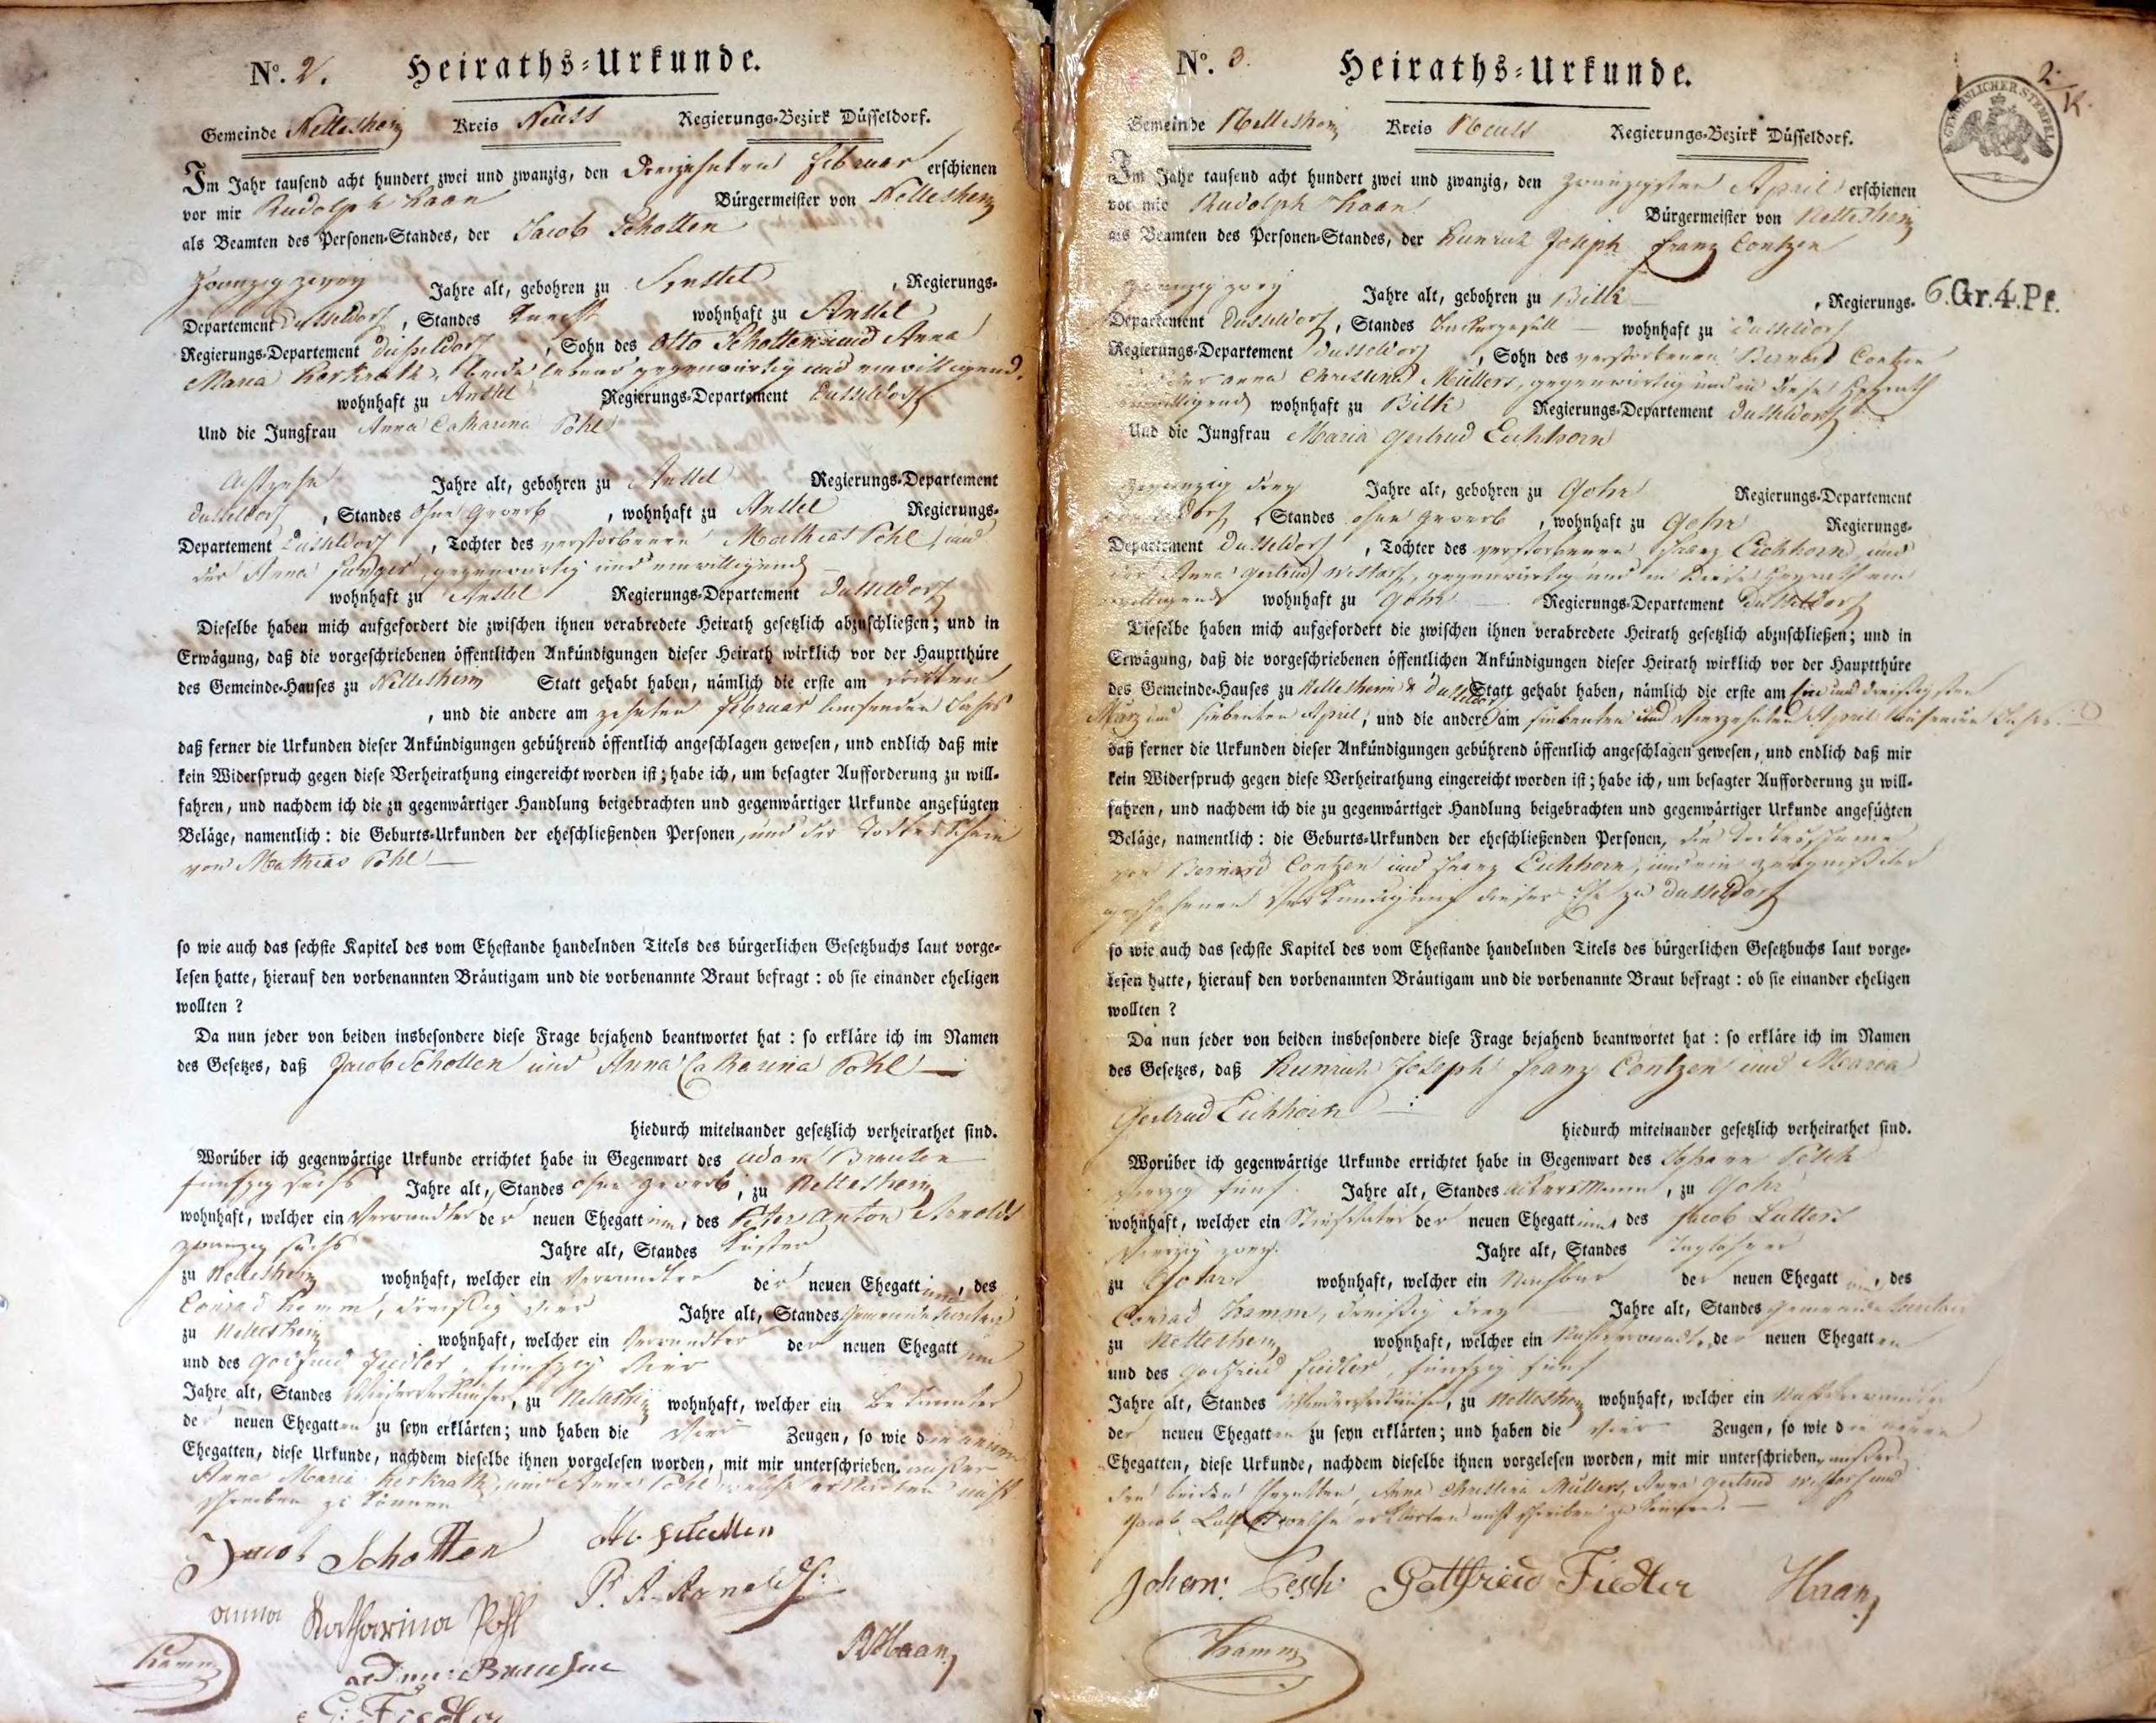 No. 2.
Heiraths-Urkunde.
Gemeinde Nettesheim Kreis Neuss Regierungs-Bezirk Düsseldorf.
Im Jahr tausend acht hundert zwei und zwanzig, den dreizehnten Februar erschienen
vor mir Rudolph Haan Bürgermeister von Nettesheim
als Beamten des Personen-Standes, der Jacob Schotten
zwanzig zwey Jahre alt, gebohren zu , Regierungs-
Departement Dusseldorf, Standes Knecht wohnhaft zu Anstel
Regierungs-Departement Dusseldorf, Sohn des Otto Schotten und Anna
Maria Kerkrath, beide lebend gegenwärtig und einwilligend,
wohnhaft zu Anstel Regierungs-Departement Dusseldorf
Und die Jungfrau Anna Catharina Pohl
achtzehn Jahre alt, gebohren zu Anstel Regierungs-Departement
Dusseldorf, Standes ohne Gewerb, wohnhaft zu Anstel Regierungs-
Departement Dusseldorf, Tochter des verstorbenen Mathias Pohl, und
der Anna gegenwärtig und einwilligend
wohnhaft zu Anstel Regierungs-Departement Dusseldorf
Dieselbe haben mich aufgefordert die zwischen ihnen verabredete Heirath gesetzlich abzuschließen; und in
Erwägung, daß die vorgeschriebenen öffentlichen Ankündigungen dieser Heirath wirklich vor der Hauptthüre
des Gemeinde-Hauses zu Nettesheim Statt gehabt haben, nämlich die erste am dritten
, und die andere am zehnten Februar laufenden Jahrs
daß ferner die Urkunden dieser Ankündigungen gebührend öffentlich angeschlagen gewesen, und endlich daß mir
kein Widerspruch gegen diese Verheirathung eingereicht worden ist; habe ich, um besagter Aufforderung zu will-
fahren, und nachdem ich die zu gegenwärtiger Handlung beigebrachten und gegenwärtiger Urkunde angefügten
Beläge, namentlich: die Geburts-Urkunden der eheschließenden Personen, und der Todtesschein
von Mathias Pohl
so wie auch das sechste Kapitel des vom Ehestande handelnden Titels des bürgerlichen Gesetzbuchs laut vorge-
lesen hatte, hierauf den vorbenannten Bräutigam und die vorbenannte Braut befragt: ob sie einander eheligen
wollten?
Da nun jeder von beiden insbesondere diese Frage bejahend beantwortet hat: so erkläre ich im Namen
des Gesetzes, daß Jacob Schotten und Anna Catharina Pohl
hiedurch miteinander gesetzlich verheirathet sind.
Worüber ich gegenwärtige Urkunde errichtet habe in Gegenwart des Adam Brausen
fünfzig sechs Jahre alt, Standes ohne Gewerb, zu Nettesheim
wohnhaft, welcher ein Verwandter der neuen Ehegattinn, des Peter Anton Arnolds
zwanzig sechs Jahre alt, Standes Küster
zu Nettesheim wohnhaft, welcher ein Verwandter der neuen Ehegattinn, des
Conrad Hamm, dreißig vier Jahre alt, Standes Gemeinde Secretair
zu Nettesheim wohnhaft, welcher ein Verwandter der neuen Ehegattinn
und des Godfried Fiedler, fünfzig vier
Jahre alt, Standes Wiederverkäufer, zu Nettesheim wohnhaft, welcher ein Bekannter
der neuen Ehegatten zu seyn erklärten; und haben die vier Zeugen, so wie die neuen
Ehegatten, diese Urkunde, nachdem dieselbe ihnen vorgelesen worden, mit mir unterschrieben, außer
Anna Maria Kerkrath, und Anna Pohl, welche erklärten nicht
schreiben zu können
Jacob Schotten Otto Schotten
P. A. Arnolds
anna Katharina Pohl
Hamm RHaan
Adam Brausen
G: Fiedler
No. 3.
Heiraths-Urkunde.
2.
Gemeinde Nettesheim Kreis Neuss Regierungs-Bezirk Düsseldorf.
Im Jahr tausend acht hundert zwei und zwanzig, den zwanzigsten April erschienen
vor mir Rudolph Haan Bürgermeister von Nettesheim
als Beamten des Personen-Standes, der Heinrich Joseph Franz Contzen
zwanzig zwey Jahre alt, gebohren zu Bilk , Regierungs-
6 Gr. 4. Pf.
Departement Dusseldorf, Standes wohnhaft zu Dusseldorf
Regierungs-Departement Dusseldorf, Sohn des verstorbenen Bernard Contzen
und der Anna Christina Müllers, gegenwärtig und in diese Heyrath
einwilligend wohnhaft zu Bilk Regierungs-Departement Dusseldorf
Und die Jungfrau Maria Gertrud Eichhorn
zwanzig drey Jahre alt, gebohren zu Gohr Regierungs-Departement
Dusseldorf, Standes ohne Gewerb, wohnhaft zu Gohr Regierungs-
Departement Dusseldorf, Tochter des verstorbenen Franz Eichhorn und
der Anna Gertrud Wistorf, gegenwärtig und in diese Heyrath ein
willigend wohnhaft zu Gohr Regierungs-Departement Dusseldorf
Dieselbe haben mich aufgefordert die zwischen ihnen verabredete Heirath gesetzlich abzuschließen; und in
Erwägung, daß die vorgeschriebenen öffentlichen Ankündigungen dieser Heirath wirklich vor der Hauptthüre
des Gemeinde-Hauses zu Nettesheim & Dusseldorf Statt gehabt haben, nämlich die erste am ein und dreißigsten
März und siebenten April, und die andere am siebenten und vierzehnten April laufenden Jahrs.
daß ferner die Urkunden dieser Ankündigungen gebührend öffentlich angeschlagen gewesen, und endlich daß mir
kein Widerspruch gegen diese Verheirathung eingereicht worden ist; habe ich, um besagter Aufforderung zu will-
fahren, und nachdem ich die zu gegenwärtiger Handlung beigebrachten und gegenwärtiger Urkunde angefügten
Beläge, namentlich: die Geburts-Urkunden der eheschließenden Personen, die Todtesscheine
von Bernard Contzen und Franz Eichhorn, und ein Zeugniß der
geschehenen Verkündigung dieser Ehe zu Dusseldorf
so wie auch das sechste Kapitel des vom Ehestande handelnden Titels des bürgerlichen Gesetzbuchs laut vorge-
lesen hatte, hierauf den vorbenannten Bräutigam und die vorbenannte Braut befragt: ob sie einander eheligen
wollten?
Da nun jeder von beiden insbesondere diese Frage bejahend beantwortet hat: so erkläre ich im Namen
des Gesetzes, daß Heinrich Joseph Franz Contzen und Maria
Gertrud Eichhorn
hiedurch miteinander gesetzlich verheirathet sind.
Worüber ich gegenwärtige Urkunde errichtet habe in Gegenwart des Johann
vierzig fünf Jahre alt, Standes Ackersmann, zu Gohr
wohnhaft, welcher ein Stiefvater der neuen Ehegattinn, des Jacob
vierzig zwey Jahre alt, Standes Taglöhner
zu Gohr wohnhaft, welcher ein Nachbar der neuen Ehegattinn, des
Conrad Hamm, dreißig drey Jahre alt, Standes Gemeinde Secretair
zu Nettesheim wohnhaft, welcher ein der neuen Ehegatten
und des Gottfried Fiedler, fünfzig fünf
Jahre alt, Standes Wiederverkäufer, zu Nettesheim wohnhaft, welcher ein
der neuen Ehegatten zu seyn erklärten; und haben die vier Zeugen, so wie die neuen
Ehegatten, diese Urkunde, nachdem dieselbe ihnen vorgelesen worden, mit mir unterschrieben, außer
den beiden Ehegatten, Anna Christina Müllers, Anna Gertrud Wistorf und
Jacob welche erklärten nicht schreiben zu können.
Johann: Gottfried Fiedler Haan
Hamm